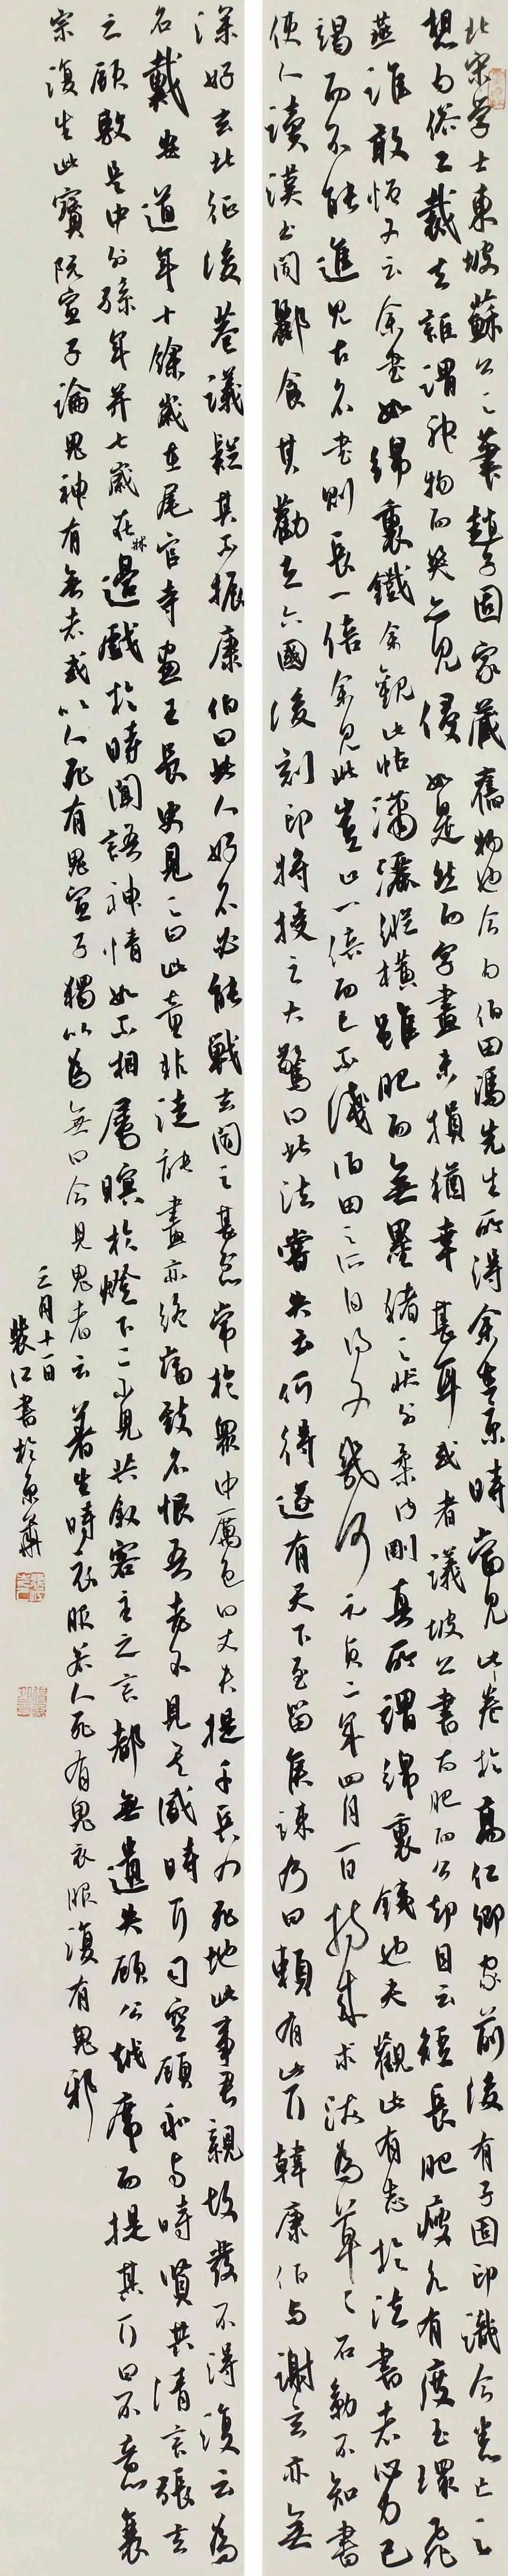 北宋学士東坡蘇公之筆趙子固家藏舊物也今为伯田馮先生所得余在京時嘗見此卷於髙仁卿家前後有子固印識今悉亡之
想为俗工裁去誰謂神物而癸之見侵如是然而字畫未損猶幸甚耳或者議坡公書太肥而公却自云短長肥瘦各有度玉環飛
燕誰敢憎又云余書如綿裏鐵余觀此帖瀟灑縱橫雖肥而無墨猪之狀外柔内剛真所謂綿裏鐵也夫觀此有志於法書者心力已
竭而不能進見古名書則長一倍余見此豈止一倍而已不識伯田之所自得又幾何元貞二年四月一日持來求跋為草草石勒不知書
使人讀漢書聞酈食其勸立六國後刻印將授之大驚曰此法當失云何得遂有天下至留侯諫乃曰賴有此耳韓康伯与謝玄亦無
深好玄北征後巷議疑其不振康伯曰此人好名必能戰玄聞之甚忿常於眾中厲色曰丈夫提千兵入死地此事君親故發不得復云為
名戴安道年十餘歲在瓦官寺畫王長史見之曰此童非徒能畫亦終當致名恨吾老不見其盛時耳司空顧和与時賢共清言張玄
之顧敷是中外孫年并七歲在牀邊戲於時聞語神情如不相屬瞑於燈下二小兒共叙客主之言都無遺失顧公越席而提其耳曰不意衰
宗復生此寶阮宣子論鬼神有無者或以人死有鬼宣子獨以為無曰今見鬼者云著生時衣服若人死有鬼衣服復有鬼邪
三月十一日
裴江書於京華